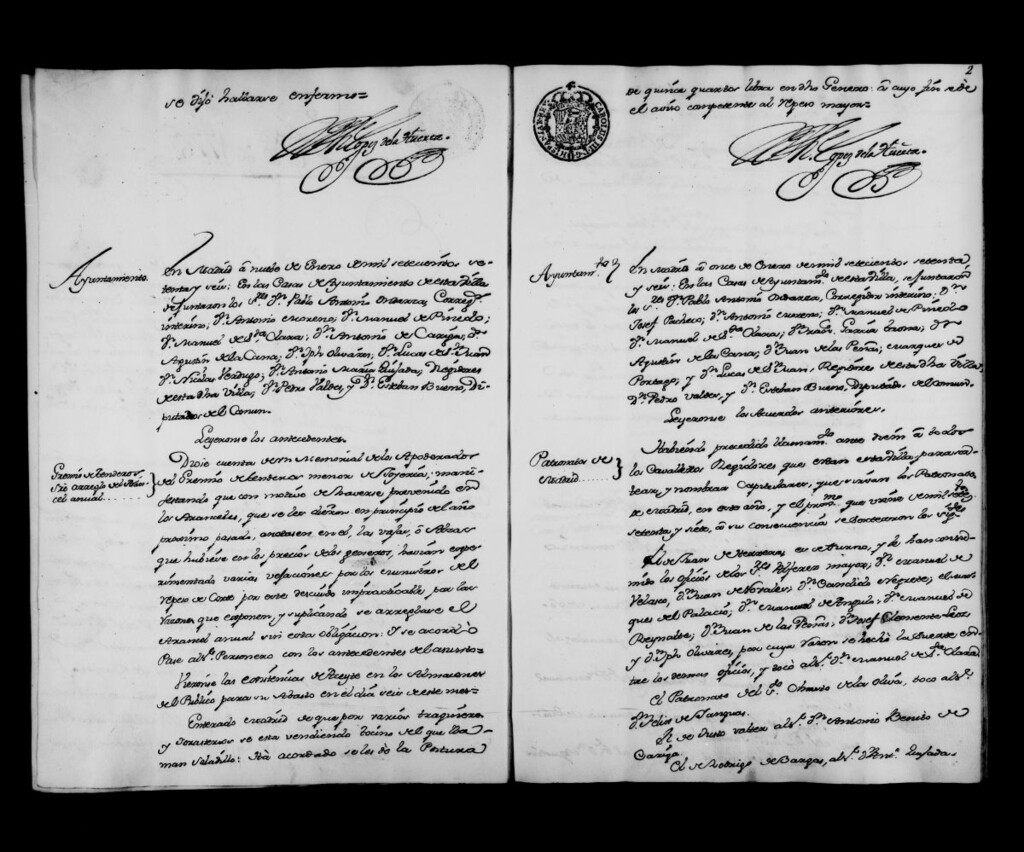 se dijo hallarse enfermo=
Lopez de la Huerta.
Ayuntamiento.
En Madrid á nueve de Enero de mil setecientos se-
tenta y seis: En las Casas de Ayuntamiento de esta Villa
se juntaron los Sres. Dn. Pablo Antonio Ondarza, Corregr.
interino; Dn. Antonio Moreno; Dn. Manuel de Pinedo;
Dn. Manuel de Sta. Clara; Dn. Antonio de Cariga; Dn.
Agustin de la Cana; Dn. Jph Olivares; Dn. Lucas de Sn. Juan
Dn. Nicolas Verdugo; Dn. Antonio Maria Quijada, Regidores
de esta dha Villa; Dn. Pedro Valdes, y Dn. Esteban Bueno, Di-
putados del Comun.
Leyeronse los antecedentes.
Gremio de tenderos
sre arreglo del Aran-
cel anual
Diose cuenta de un Memorial de los Apoderados
del Gremio de tenderos menor de Joyeria; mani-
festando que con motivo de haverse prevenido en
los Aranzeles, que se les dieron en principio del año
proximo pasado, anotasen en él, las vajas, ó Alzas
que hubiese en los precios de los generos, havian expe-
rimentado varias vejaciones por los ministros del
repeso de Corte por este descuido impracticable por las
razones que exponen, y suplicando se arreglase el
Aranzel anual sin esta obligacion: Y se acordó
Pase al Sr. Personero con los antecedentes del asunto=
Vieronse las existencias de Aceyte en los Almacenes
del Público para su Abasto en el dia seis de este mes=
Enterado Madrid de que por varios tragineros
y forasteros se esta vendiendo tocino del que lla-
man Saladillo: Ha acordado se les dé la Postura
2
de quince quartos libra en dho Genero: á cuyo fin se dé
el aviso competente al repeso mayor=
Lopez de la Huerta.
Ayuntamto.
En Madrid á once de Enero de mil setecientos setenta
y seis: En las Casas de Ayuntamto. de esta Villa, se juntaron
los Sres. Dn. Pablo Antonio Ondarza, Corregidor interino; Dn.
Josef Pacheco; Dn. Antonio Moreno; Dn. Manuel de Pinedo
Dn. Manuel de Sta. Clara; Dn. Garcia Dn.
Agustin de la Cana; Dn. Juan de las Peñas; Marques de
Portago, y Dn. Lucas de Sn. Juan, Regidores de esta dha Villa
Dn. Pedro Valdes, y Dn. Esteban Bueno, Diputados del comun.
Leyeronse los Acuerdos anteriores.
Patronatos de
Madrid
Habiendo precedido llamamto. ante diem á todos
los Cavalleros Regidores que estan en la Villa para sor-
tear, y nombrar Capitulares, que sirvan los Patronatos
de Madrid, en este año, y el proxmo. que viene de mil
setenta y siete, á su consecuencia se sortearon los sigtes.
El de Juan de Herrera, es de turno, y le han omi-
mido los oficios de los Sres. Alferez mayor; Dn. Manuel de
Velasco, Dn. Juan de Novales; Dn. Candido Negrete; el mar-
ques del Palacio; Dn. Manuel de Angulo; Dn. Manuel de
Reynalte; Dn. Juan de las Peñas; Dn. Josef Clemente
y Dn. Jph Olivares, por cuya razon se hechó la suerte en-
tre los demas oficios, y tocó al Sr. Dn. Manuel de Sta. Clara
El Patronato del Sto. Christo de la Oliva, toco al Sr.
Dn. Felix de Yanguas.
El de Justo Valter al Sr. Dn. Antonio Benito de
Cariga.
El de Rodrigo de Bargas, al Sr. Dn. Anto. Quijada.